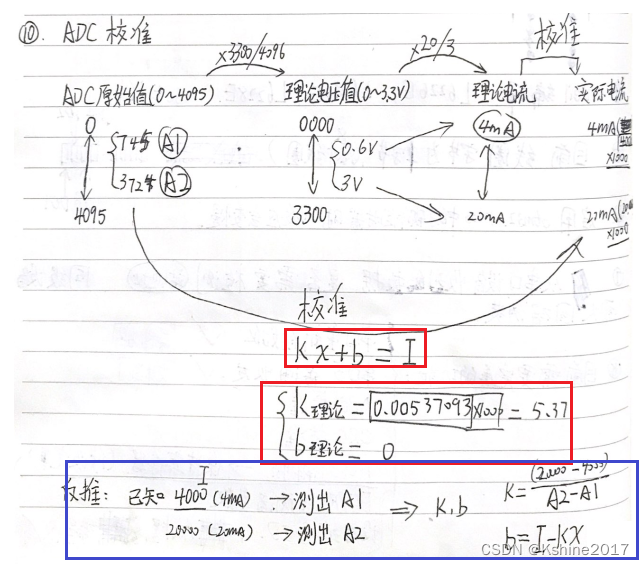 ⑩. ADC 校准
×3300/4096 ×20/3 校准
ADC原始值(0~4095) 理论电压值(0~3.3V) 理论电流 实际电流
0 0000 4mA 4mA
574 A1 0.6V ×1000
372 A2 3V
4095 3300 20mA ×1000
校准
Kx+b=I
K理论=0.00537093×1000=5.37
b理论=0
I
反推: 已知 4000(4mA) →测出 A1 ⇒ K.b K=(20000-4000)/A2-A1
20000(20mA) →测出 A2 b=I-KX
CSDN @Kshine2017